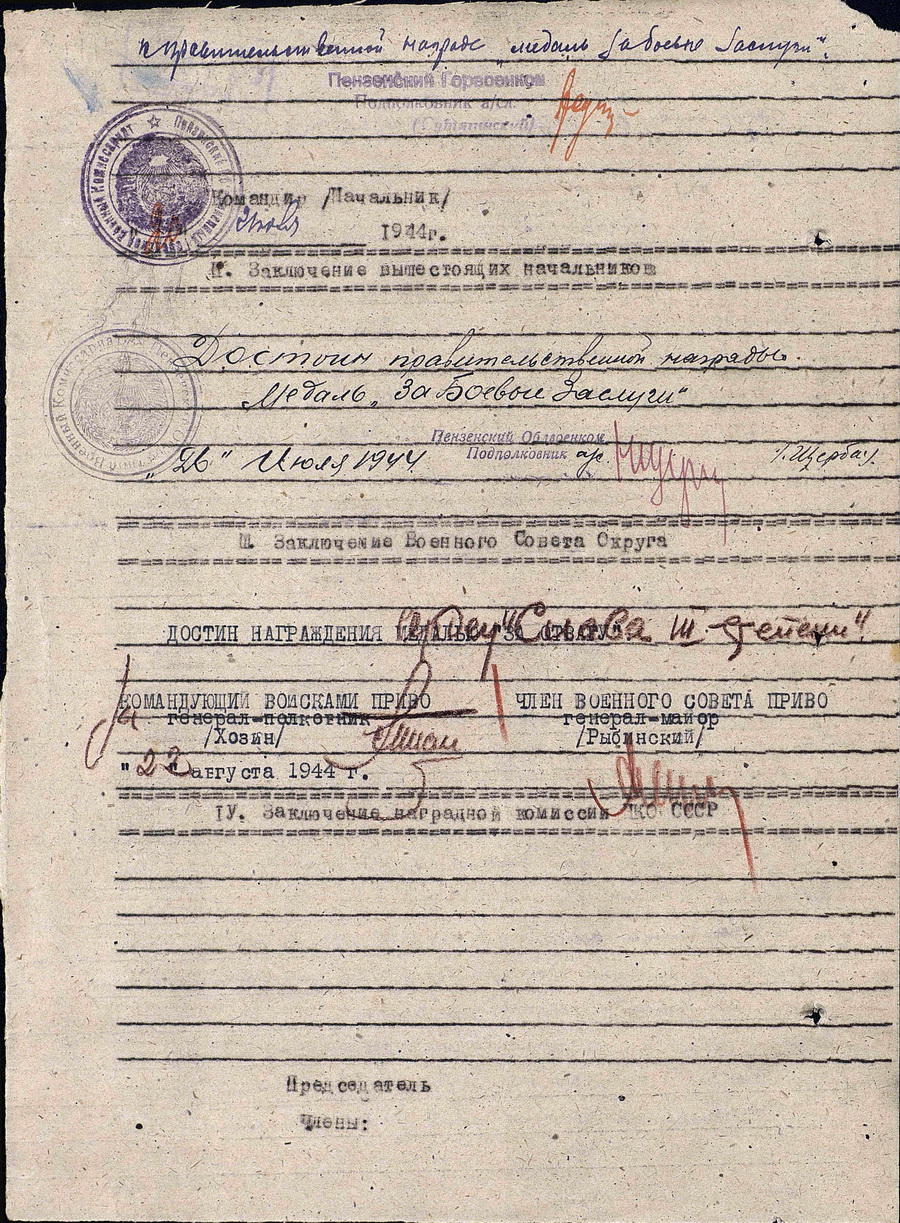 к правительственной награде "медаль за боевые заслуги".
Пензенский Горвоенком
Подполковник а/сл.
Командир /Начальник/
июля 1944г.
П. Заключение вышестоящих начальников
Достоин правительственной награды
"Медаль "За Боевые Заслуги"
Пензенский Облвоенком
Подполковник
"26" Июля 1944 /.Щербо./
Ш. Заключение Военного Совета Округа
ДОСТИН НАГРАЖДЕНИЯ МЕДАЛЬЮ "ЗА ОТВАГУ"
"Слава III степени"
За
КОМАНДУЮЩИЙ ВОЙСКАМИ ПРИВО ЧЛЕН ВОЕННОГО СОВЕТА ПРИВО
генерал-полковник генерал-майор
/Хозин/ /Рыбинский/
"22" августа 1944 г.
IУ. Заключение наградной комиссии НКО СССР
Председатель
Члены: